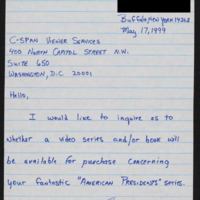 Buffalo, New York 14208
May 17, 1999
C-SPAN Viewer Services
400 North Capitol Street N.W.
Suite 650
Washington, D.C. 20001
Hello,
I would like to inquire as to
whether a video series and/or book will
be available for purchase concerning
your fantastic "American Presidents" series.